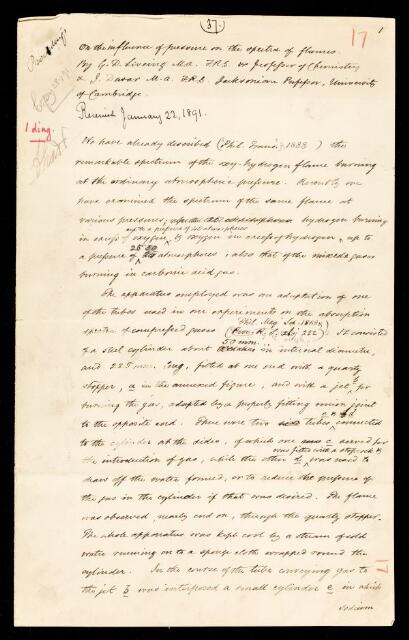 37.
17
1
On the influence of pressure on the spectra of flames.
By G. D. Liveing M.A. F.R.S. & Professor of Chemistry
& J. Dewar M.A. F.R.S. Jacksonian Professor, University
of Cambridge.
Received January 22, 1891.
1 diag.
We have already described (Phil. Trans. 1888) the
remarkable spectrum of the oxy-hydrogen flame burning
at the ordinary atmospheric pressure. Recently we
have examined the spectrum of the same flame at
various pressures, hydrogen burning
up to a pressure of 40 atmospheres
in excess of oxygen, & oxygen in excess of hydrogen, up to
a pressure of atmospheres; also that of the mixed gases
burning in carbonic acid gas.
The apparatus employed was an adaptation of one
of the tubes used in our experiments on the absorption
Phil. Mag. Sep. 1888
spectra of compressed gases (Proc. R. S. 222). It consisted
50 mm.
of a steel cylinder about in internal diameter,
and 225 mm. long, fitted at one end with a quartz
stopper, a in the annexed figure, and with a jet, b for
burning the gas, adapted by a properly fitting union joint
to the opposite end. There were two tubes, connected
to the cylinder at the sides, of which one c served for
was fitted with a stopcock &
the introduction of gas, while the other d, was used to
draw off the water formed, or to reduce the pressure of
the gas in the cylinder if that was desired. The flame
was observed, nearly end on, through the quartz stopper.
The whole apparatus was kept cool by a stream of cold
water running on to a sponge cloth wrapped round the
cylinder. In the course of the tube conveying gas to
the jet b was interposed a small cylinder e in which
sodium
17